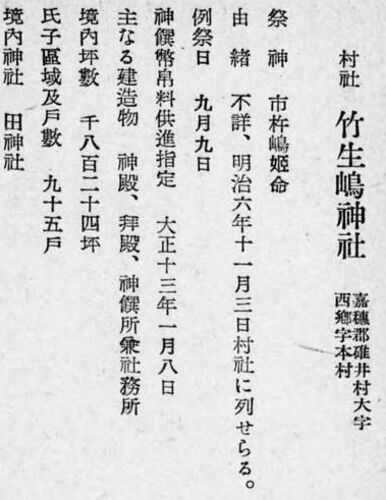 村社 竹生嶋神社 嘉穗郡碓井村大字
西鄕字本村
祭神 市杵嶋姬命
由緖 不詳、明治六年十一月三日村社に列せらる。
例祭日 九月九日
神饌幣帛料供進指定 大正十三年一月八日
主なる建造物 神殿、拜殿、神饌所兼社務所
境內坪數 千八百二十四坪
氏子區域及戶數 九十五戶
境內神社 田神社